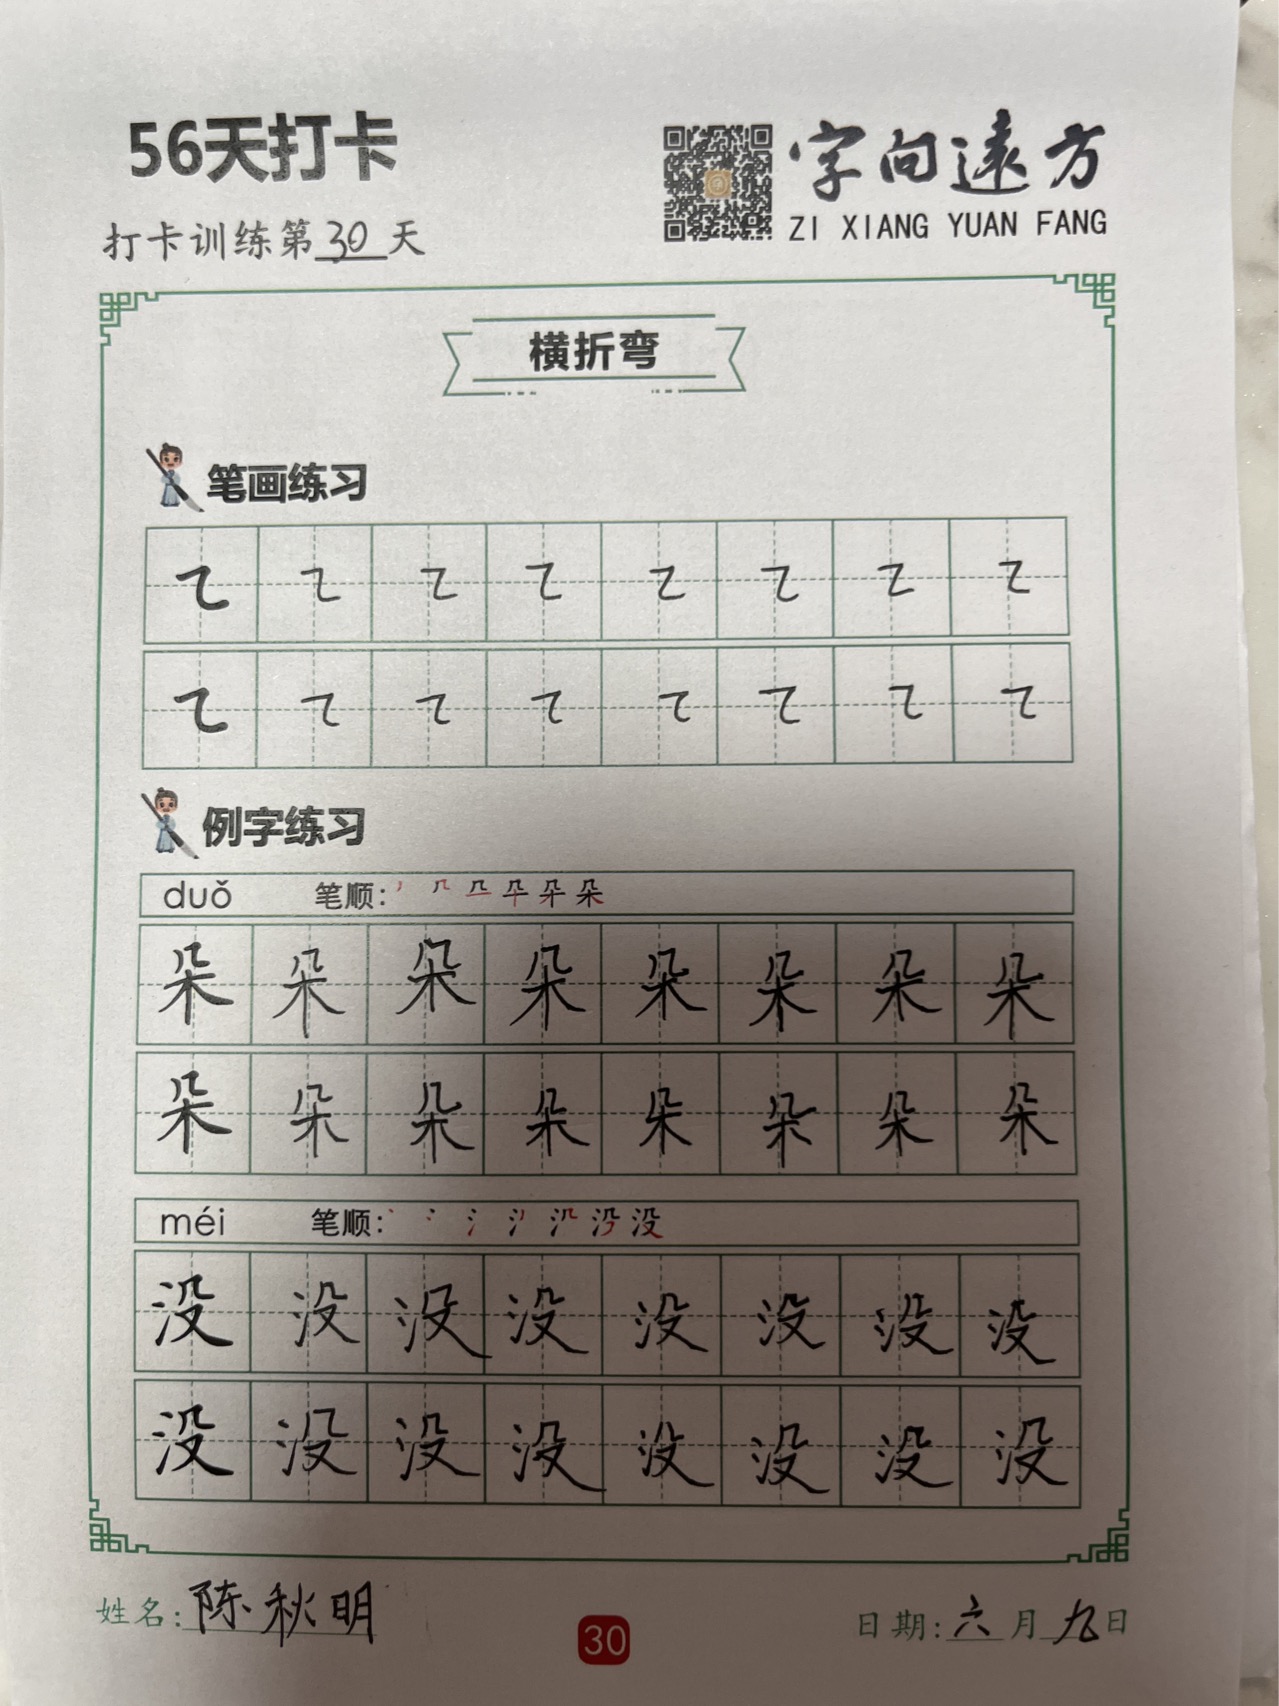 56天打卡
字向遠方
ZI XIANG YUAN FANG
打卡训练第30天
横折弯
笔画练习
㇍ ㇍ ㇍ ㇍ ㇍ ㇍ ㇍ ㇍
㇍ ㇍ ㇍ ㇍ ㇍ ㇍ ㇍ ㇍
例字练习
duǒ 笔顺:
朵 朵 朵 朵 朵 朵 朵 朵
朵 朵 朵 朵 朵 朵 朵 朵
méi 笔顺:
没 没 没 没 没 没 没 没
没 没 没 没 没 没 没 没
姓名:陈秋明
30
日期:六月九日